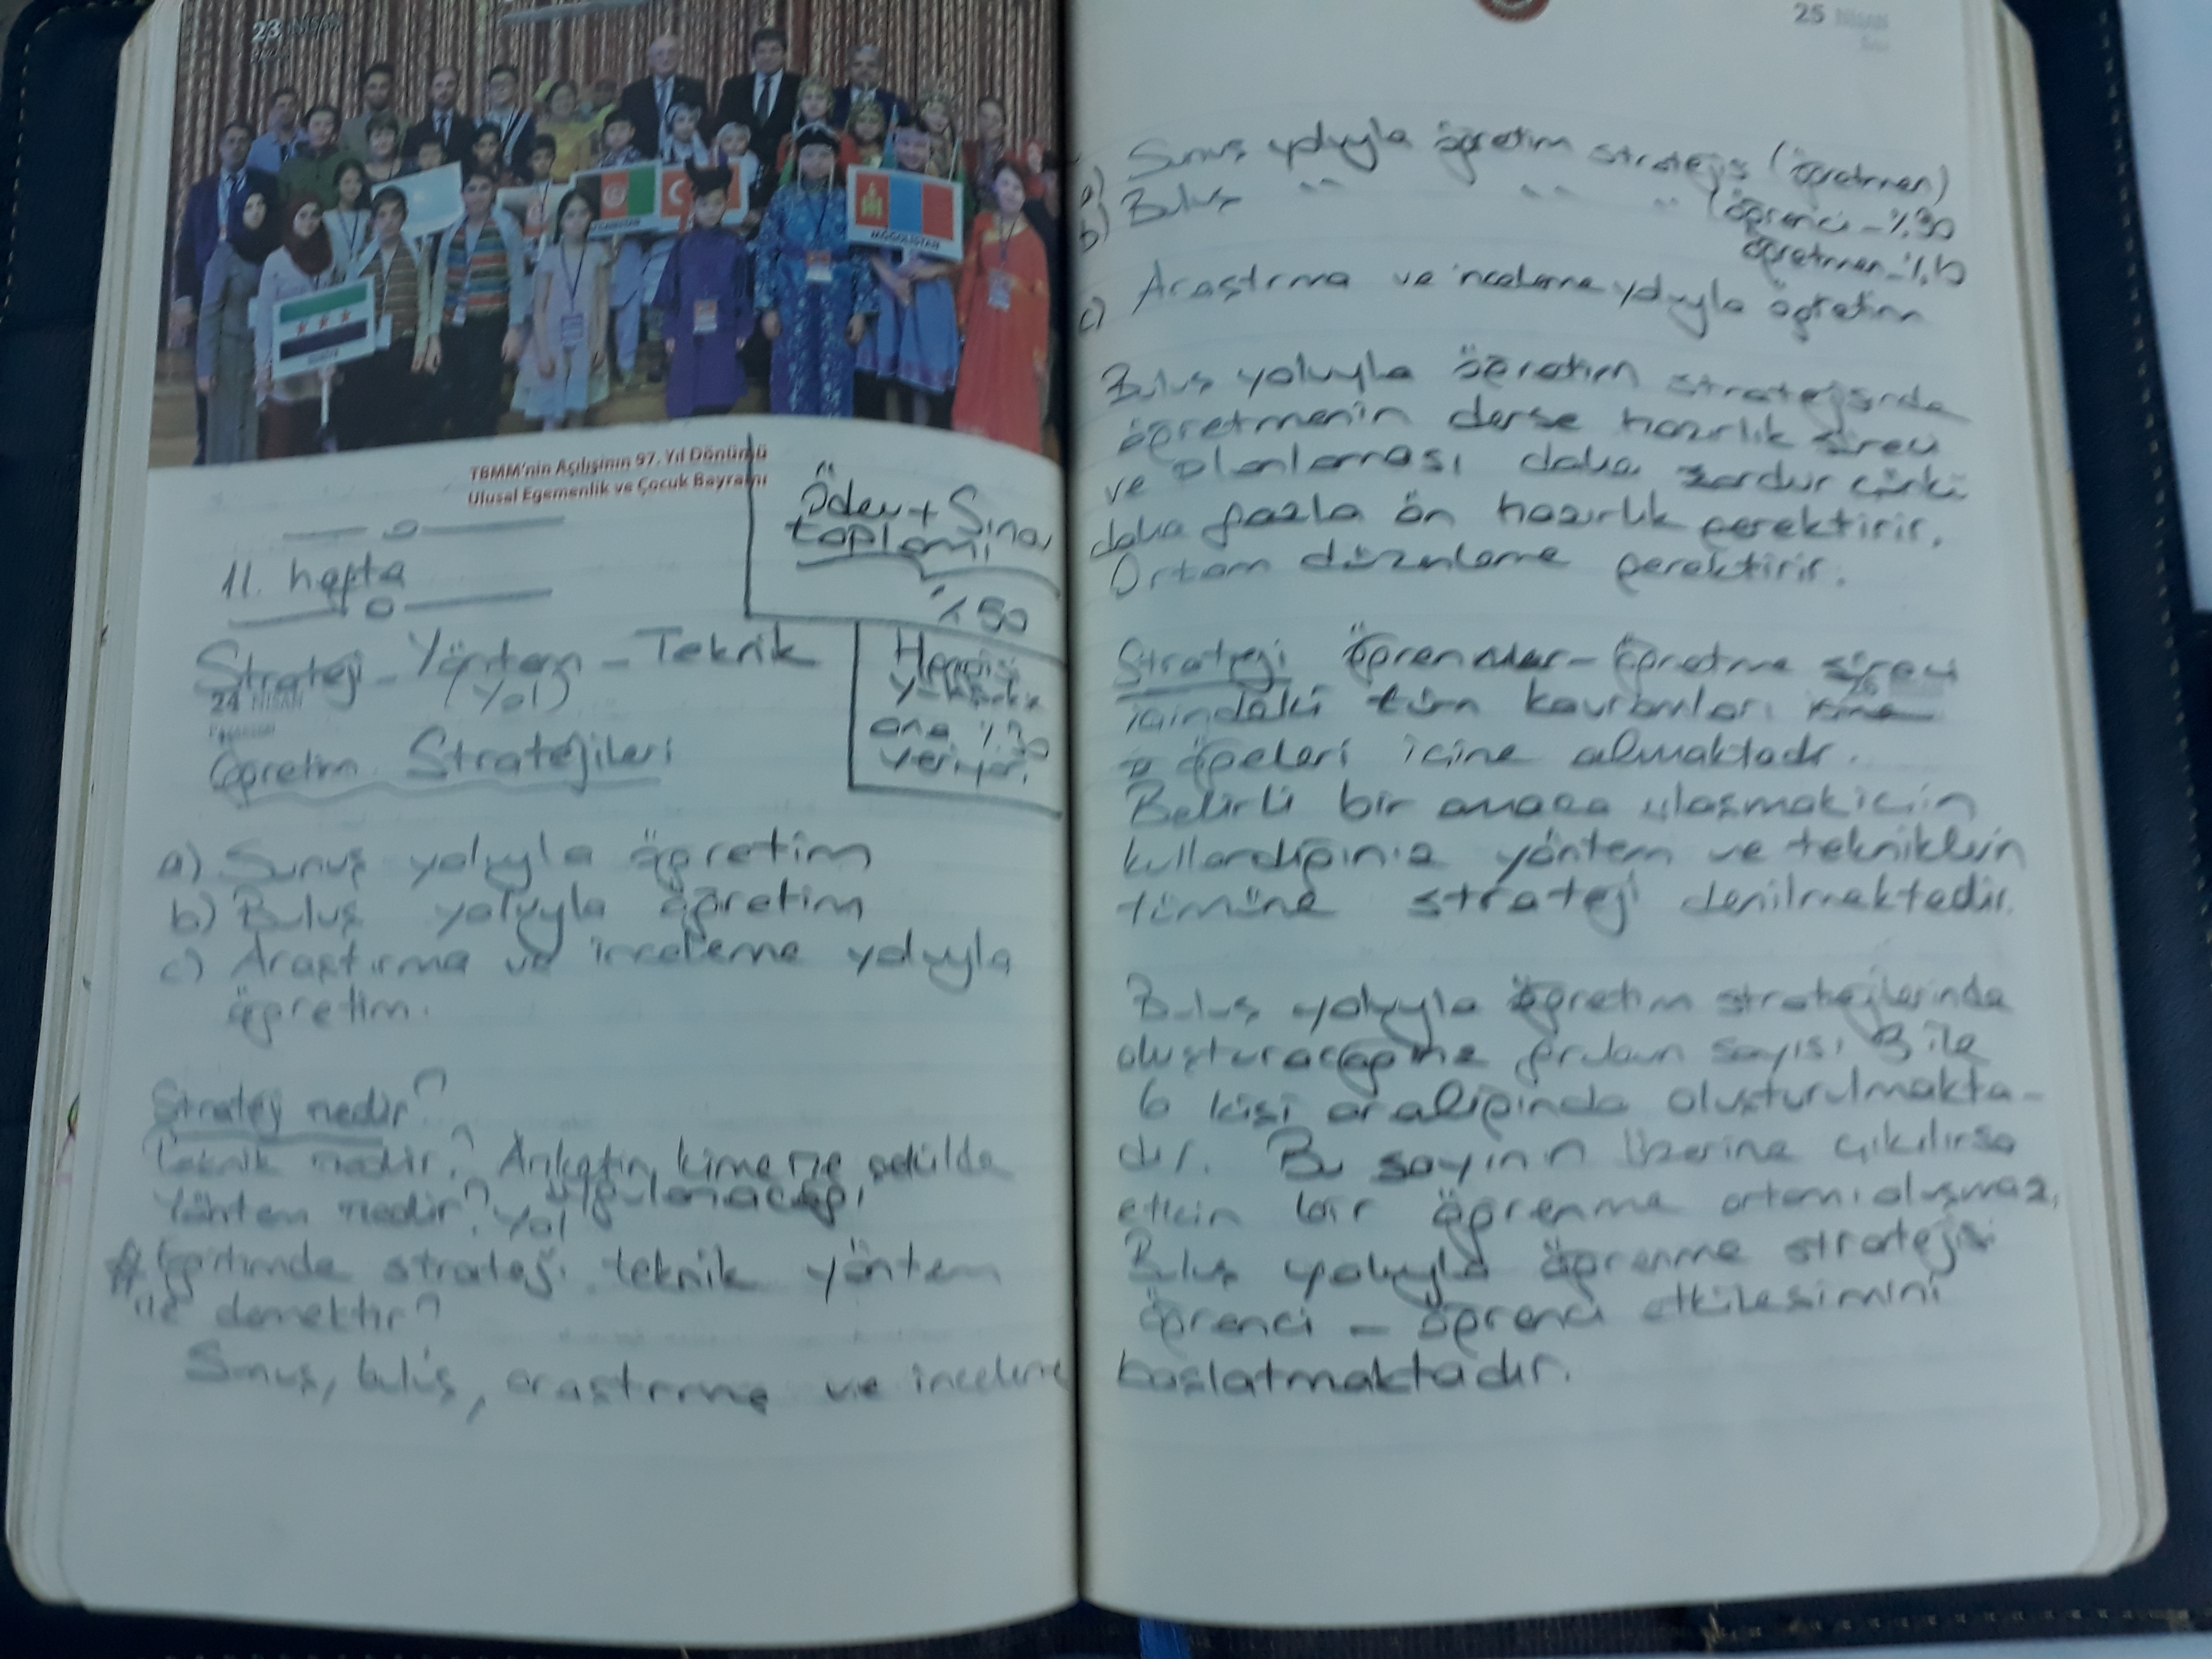 23 NİSAN
AFGANİSTAN
MOĞOLİSTAN
SURİYE
TBMM'nin Açılışının 97. Yıl Dönümü
Ulusal Egemenlik ve Çocuk Bayramı
Ödev + Sınav
toplamı
%50
Hangisi
yüksekse
ona %30
veriyor.
11. hafta
Strateji - Yöntem - Teknik
(Yol)
24 NİSAN
Pazartesi
Öğretim Stratejileri
a) Sunuş yoluyla öğretim
b) Buluş yoluyla öğretim
c) Araştırma ve inceleme yoluyla
öğretim.
Strateji nedir?
Teknik nedir? Anketin kime ne şekilde
uygulanacağı
Yöntem nedir? Yol
# Eğitimde strateji teknik yöntem
ne demektir?
Sunuş, buluş, araştırma ve inceleme
25 NİSAN
Salı
a) Sunuş yoluyla öğretim stratejisi (öğretmen)
b) Buluş " " " (öğrenci - %90
öğretmen - %10
c) Araştırma ve inceleme yoluyla öğretim
Buluş yoluyla öğretim stratejisinde
öğretmenin derse hazırlık süreci
ve planlaması daha zordur çünkü
daha fazla ön hazırlık gerektirir.
Ortam düzenleme gerektirir.
Strateji öğrenme - öğretme süreci
26
içindeki tüm kavramları
öğeleri içine almaktadır.
Belirli bir amaca ulaşmak için
kullandığınız yöntem ve tekniklerin
tümüne strateji denilmektedir.
Buluş yoluyla öğretim stratejilerinde
oluşturacağınız grubun sayısı 3 ile
6 kişi aralığında oluşturulmakta-
dır. Bu sayının üzerine çıkılırsa
etkin bir öğrenme ortamı oluşmaz.
Buluş yoluyla öğrenme stratejisi
öğrenci - öğrenci etkileşimini
başlatmaktadır.